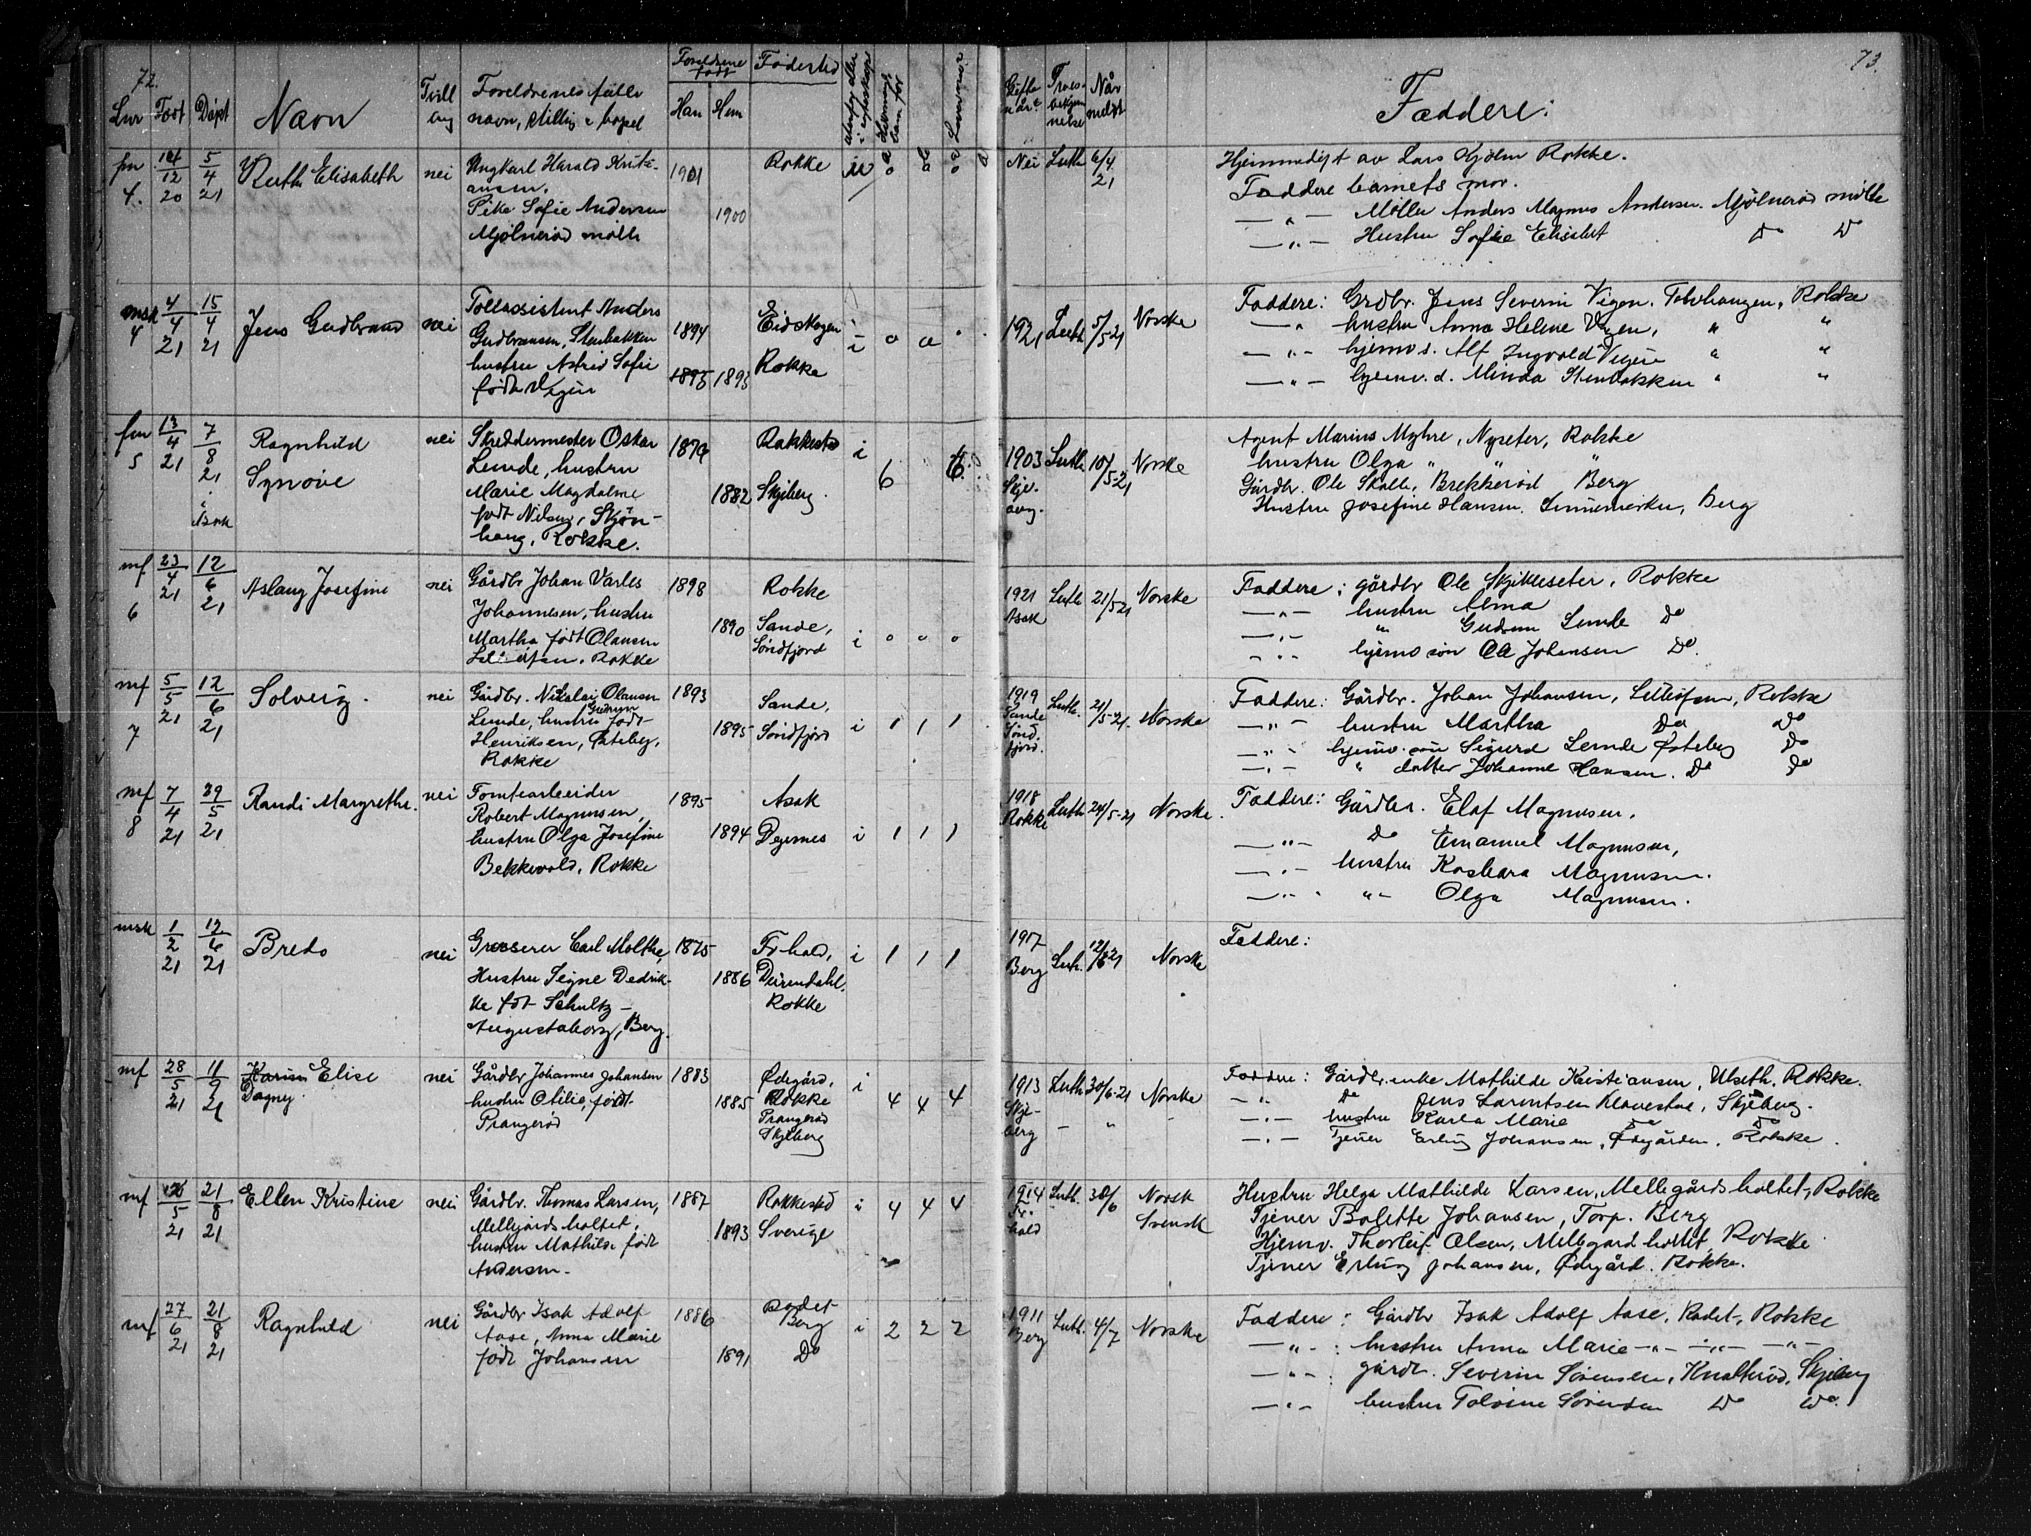 72.
Lnr Født Døpt Navn Tvilling Foreldrenes fulle navn, stilling & bopel Foreldrene født Han Hun Fødested
fm 4. 14/12 20 5/4 21 Ruth Elisabeth nei Ungkarl Harald Kristiansen. 1901 Rokke u
Pike Sofie Andersen 1900
Mjølnerød mølle
msk 4 4/4 21 15/4 21 Jens Gudbrand nei Tollassistent Anders 1894 Eidskogen i 0 0
Gudbransen, Stenbakken
hustru Astrid Sofie 1895 1893 Rokke
født Vigen
fm 5 13/4 21 7/8 21 i Asak Ragnhild Synøve nei Skreddermester Oskar 1876 Rakkestad i 6 6
Lunde, hustru
Marie Magdalene 1882 Skjeberg.
født Nilsen, Skjønhaug, Rokke.
mf 6 23/4 21 12/6 21 Aslaug Josefine nei Gårdbr Johan Varles 1898 Rokke
Johannesen, hustru 1890 Sande,
Martha født Olausen Søndfjord i 0 0 0
Rokke
mf 7 5/5 21 12/6 21 Solveig. nei Gårdbr. Nikolai Olausen 1893 Sande,
Lunde, hustru Gudrun født 1895 Søndfjord i 1 1 1
Henriksen, Østeby,
Rokke
mf 8 7/4 21 29/5 21 Randi Margrethe. nei Tomtearbeider 1895 Asak
Robert Magnusen,
hustru Olga Josefine 1894 Degernes i 1 1 1
Bekkevold, Rokke
msk 1/2 21 12/6 21 Bredo nei Grosserer Carl Molthe, 1875 Fr.hald, i 1 1 1
Hustru Signe Dedrikke født Schultz 1886
Rokke
Augustaborg, Berg.
mf 28/5 21 11/9 21 Karin Elise Dagny nei Gårdbr Johannes Johansen 1883 Ødegård, i
hustru Otilie, født 1885 Rokke 4 4 4
Prangerød Prangerød
Skjeberg
mf 5 21 21/8 21 Ellen Kristine nei Gårdbr. Thomas Larsen, 1887 Rakkestad i 4 4 4
Mellegårdsholtet,
hustru Mathilde født 1893 Sverige
Andersen.
mf 27/6 21 21/8 21 Ragnhild nei Gårdbr Isak Adolf 1886 Rødet Berg i 2 2 2
Aase, Anna Marie
født Johansen 1891 Do
73.
Gifte når? Troesbekjennelse Når meldt Faddere:
Nei Luth 6/4 21 Hjemmedøpt av Lars Kjølen Rokke.
Faddere barnets mor.
— " — Møller Anders Magnus Andersen. Mjølnerød mølle
— " — Hustru Sofie Elisabet Do Do
1921 Luth 5/5-21 Norske Faddere: Grdbr. Jens Severin Vigen, Rokke
— " hustru Anna Helene Vigen, " "
— " — hjemv. s. Alf Ingvald Vigen " "
— " — hjemv. d. Minda Stenbakken " "
1903 Skjeberg. Luth 10/5-21 Norske Agent Marius Myhre, Nyseter, Rokke
hustru Olga " " "
Gårdbr. Ole Skolle, Brekkerød Berg
Hustru Josefine Hansen. Berg
1921 Asak Luth 21/5 21 Norske Faddere: gårdbr Ole Skjikleseter, Rokke
— " — hustru Alma
— " — " Gudrun Lunde Do
" " hjemv søn Ole Johansen Do.
1919 Sande Sønd fjord. Luth. 21/5-21. Norske Faddere: Gårdbr. Johan Johansen, Rokke
— " — hustru Martha Do Do
" hjemv. søn Sigurd Lunde Østeby Do
— " — " datter Johanne Hansen. Do Do
1918 Rokke Luth 24/5-21 Norske. Faddere: Gårdbr. Elaf Magnusen.
— " — Do Emanuel Magnusen,
— " — hustru Kasbara Magnusen.
— " — " Olga Magnusen.
1917 Berg Luth. 12/6 21 Norske Faddere:
1913 Skjeberg Luth 30/6-21 Norske Faddere: Gårdbr. enke Mathilde Kristiansen, Ulseth, Rokke.
— " Do Jens Larentsen Klavestad, Skjeberg.
— " — hustru Karla Marie Do Do
— " — Tjener Erling Johansen, Ødegården, Rokke.
1914 Fr. hald Luth. 30/6 Norsk Svensk Hustru Helga Mathilde Larsen, Mellegårdsholtet, Rokke
Tjener Bolette Johansen, Torp. Berg
Hjemv. Thorleif Olsen, Mellegård holtet, Rokke
Tjener Erling Johansen, Ødegård. Rokke.
1911 Berg Luth. 4/7 Norske Faddere: Gårdbr Isak Adolf Aase, Rødet, Rokke
— " — : hustru Anna Marie — " — — " — — " —
— " — : gårdb. Severin Sørensen, Knatterød, Skjeberg
— " — hustru Tolvine Sørensen Do Do.